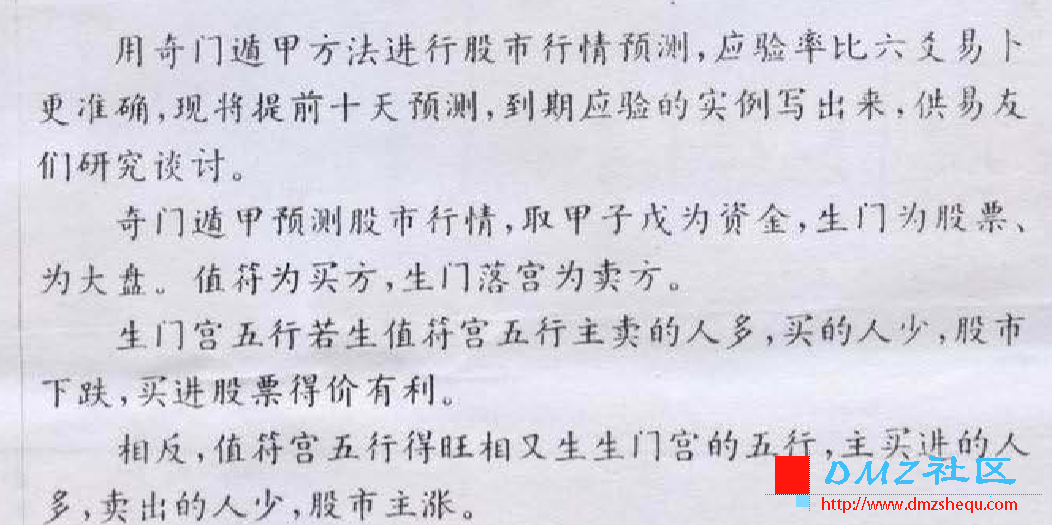 用奇门遁甲方法进行股市行情预测,应验率比六爻易卜
更准确,现将提前十天预测,到期应验的实例写出来,供易友
们研究谈讨。
奇门遁甲预测股市行情,取甲子戊为资金,生门为股票、
为大盘。值符为买方,生门落宫为卖方。
生门宫五行若生值符宫五行主卖的人多,买的人少,股市
下跌,买进股票得价有利。
相反,值符宫五行得旺相又生生门宫的五行,主买进的人
多,卖出的人少,股市主涨。
DMZ社区
http://www.dmzshequ.com